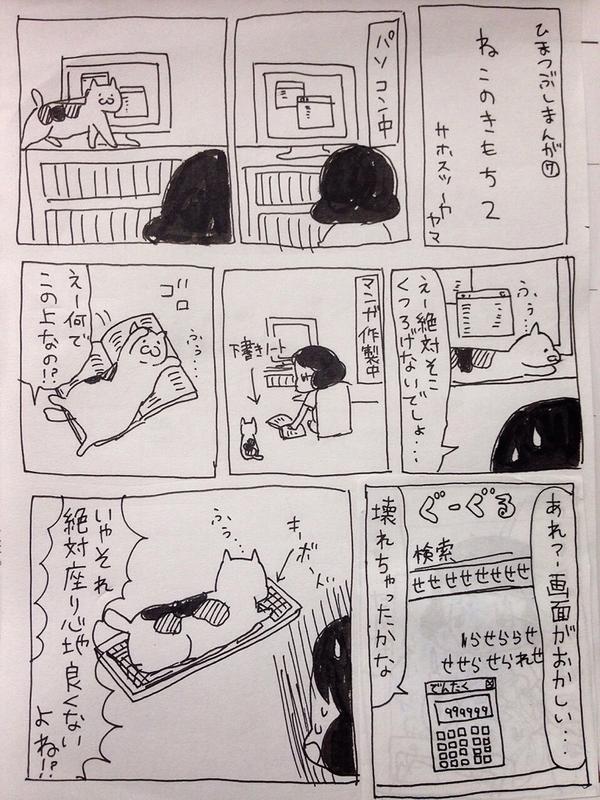 ひまつぶしまんが⑦
ねこのきもち2
サホスツーカヤマ
パソコン中
ふぅ…
えー絶対そこ
くつろげないでしょ…
マンガ作製中
下書きノート
ゴロ
ふぅ…
えー何で
この上なの!?
あれっ…画面がおかしい…
ぐーぐる
検索
せせせせせせせせ
らせららせ
せせらせられせ
でんたく
999999
壊れちゃったかな
キーボード
ふぅ…
いやそれ
絶対座り心地良くない
よね!?